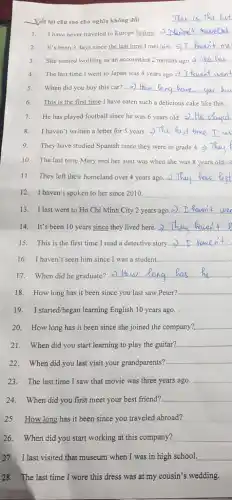 Viết lại câu sao cho nghĩa không đổi This is the first
1. I have never traveled to Europe before. → I haven't traveled
2. It's been 5 days since the last time I met him. → I haven't me
3. She started working as an accountant 2 months ago → She has
4. The last time I went to Japan was 4 years ago → I haven't went
5. When did you buy this car? → How long have you
6. This is the first time I have eaten such a delicious cake like this.
7. He has played football since he was 6 years old. → He started
8. I haven't written a letter for 5 years. → The last time I
9. They have studied Spanish since they were in grade 6. → They
10. The last time Mary met her aunt was when she was 8 years old.
11. They left their homeland over 4 years ago. → They have left
12. I haven't spoken to her since 2010.
13. I last went to Ho Chi Minh City 2 years ago. → I haven't
14. It's been 10 years since they lived here. → They haven't
15. This is the first time I read a detective story. → I haven't
16. I haven't seen him since I was a student.
17. When did he graduate? → How long has he
18. How long has it been since you last saw Peter?
19. I started/began learning English 10 years ago.
20. How long has it been since she joined the company?
21. When did you start learning to play the guitar?
22. When did you last visit your grandparents?
23. The last time I saw that movie was three years ago.
24. When did you first meet your best friend?
25. How long has it been since you traveled abroad?
26. When did you start working at this company?
27. I last visited that museum when I was in high school.
28. The last time I wore this dress was at my cousin's wedding.